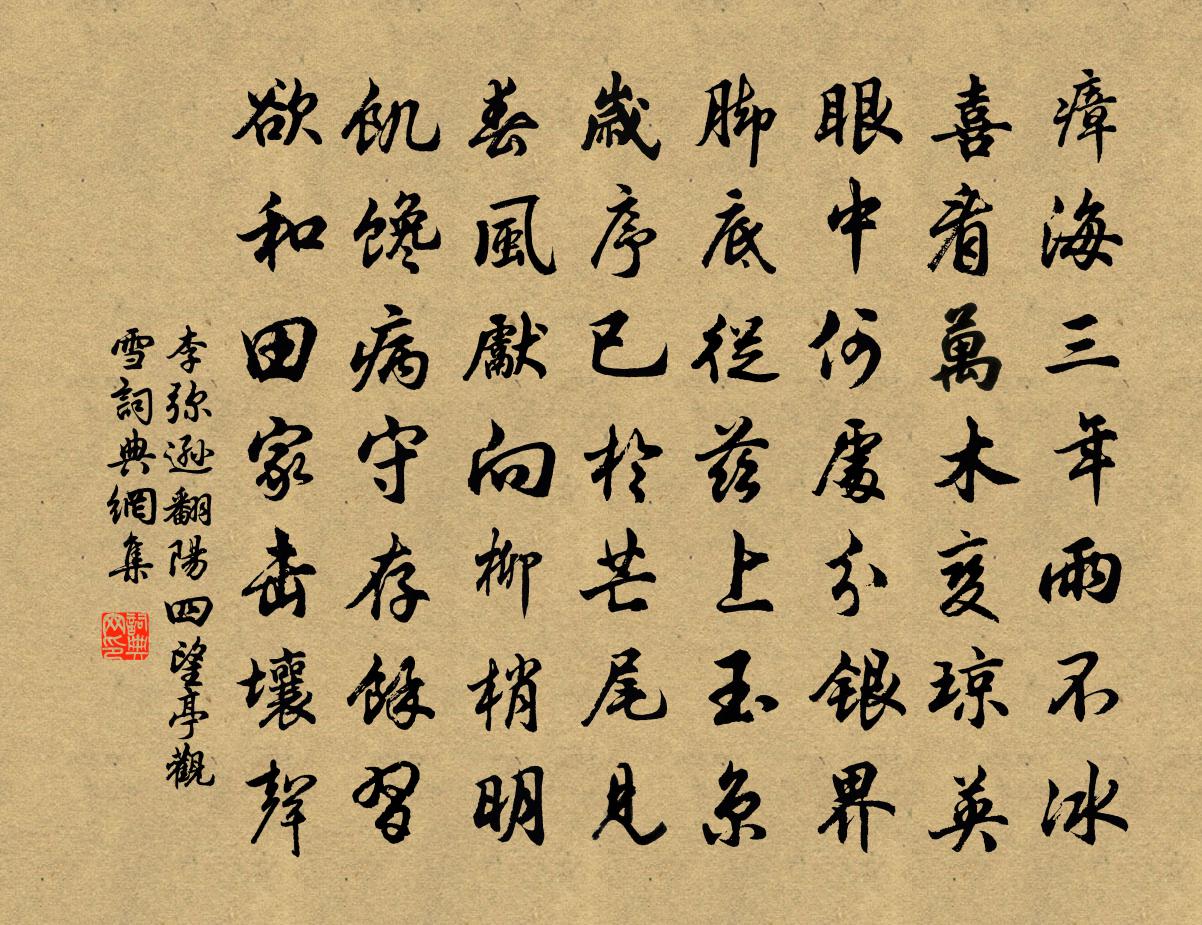 瘴海三年雨不冰
喜看萬木變琼英
眼中何處分銀界
脚底從兹上玉京
歲序已於芒尾見
春風獻向柳梢明
飢馋病守存餘習
欲和田家击壤聲
李弥遜翻陽四望亭觀
雪詞典網集
詞典網印